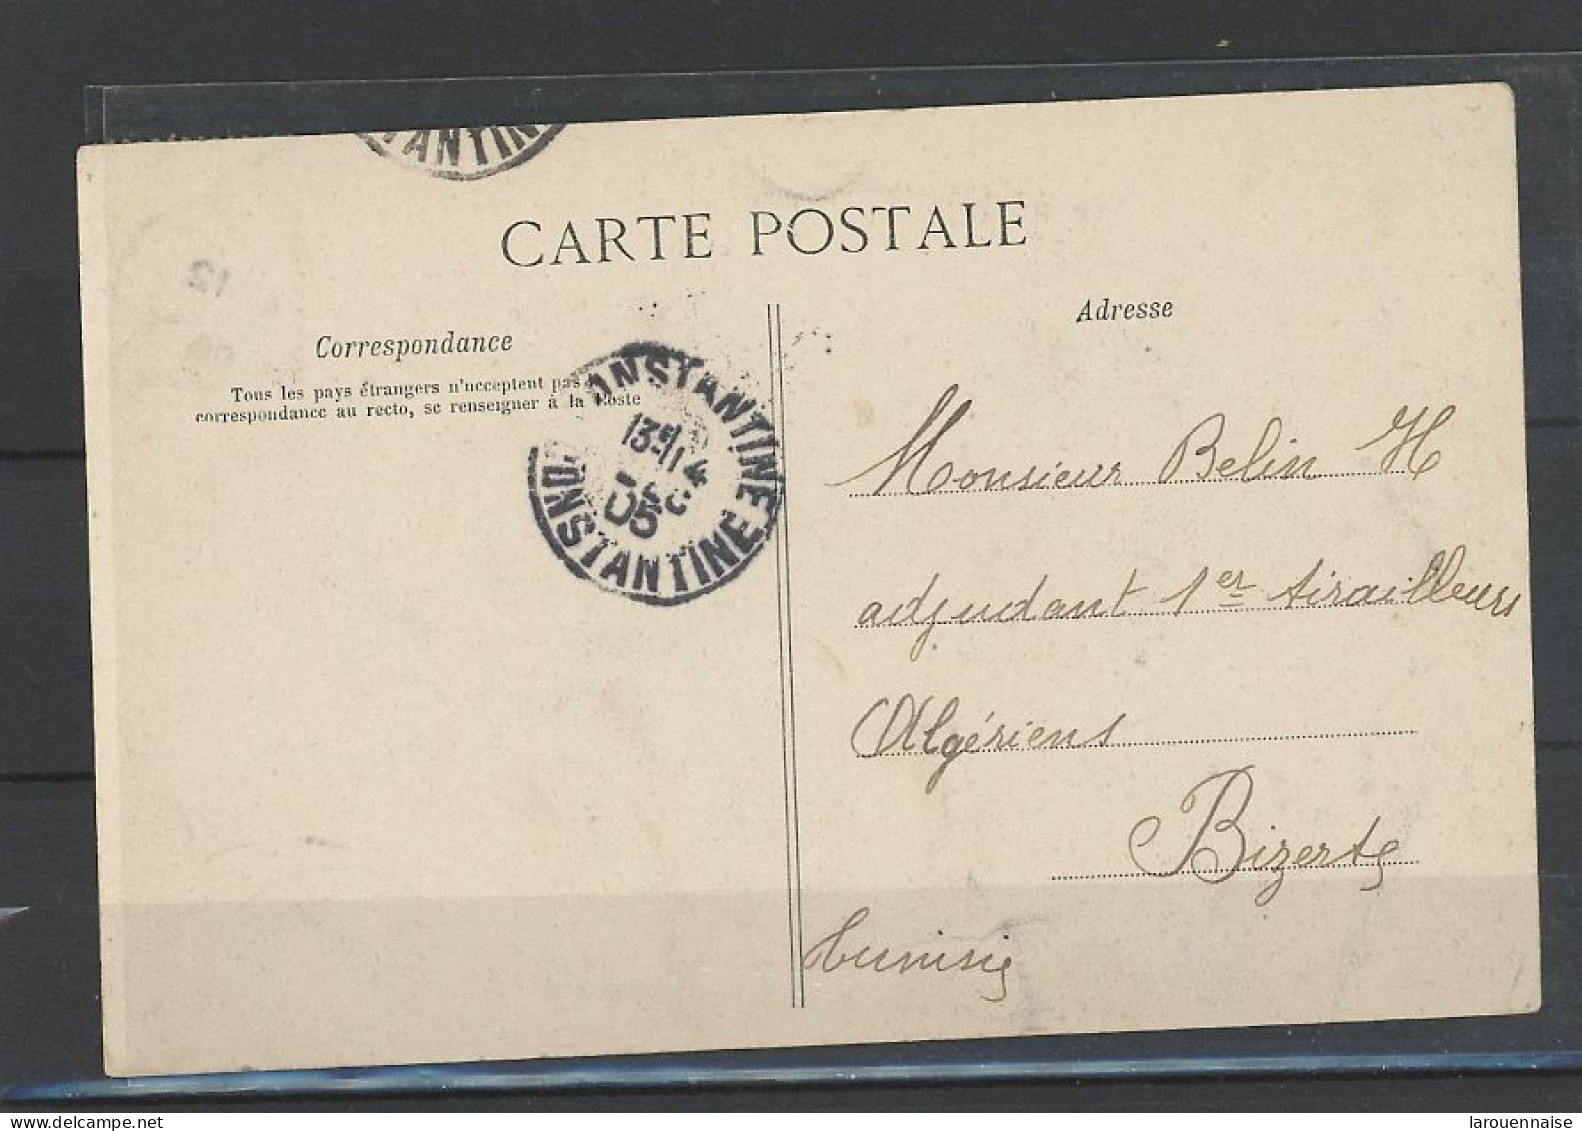 TANTIN
CARTE POSTALE
Correspondance
Tous les pays étrangers n'acceptent pas
correspondance au recto, se renseigner à la Poste
Adresse
ONSTANTINE
13E 14
05
CONSTANTINE
12
Monsieur Belin H
adjudant 1er tirailleurs
Algériens
Bizerte
Tunisie
larouennaise